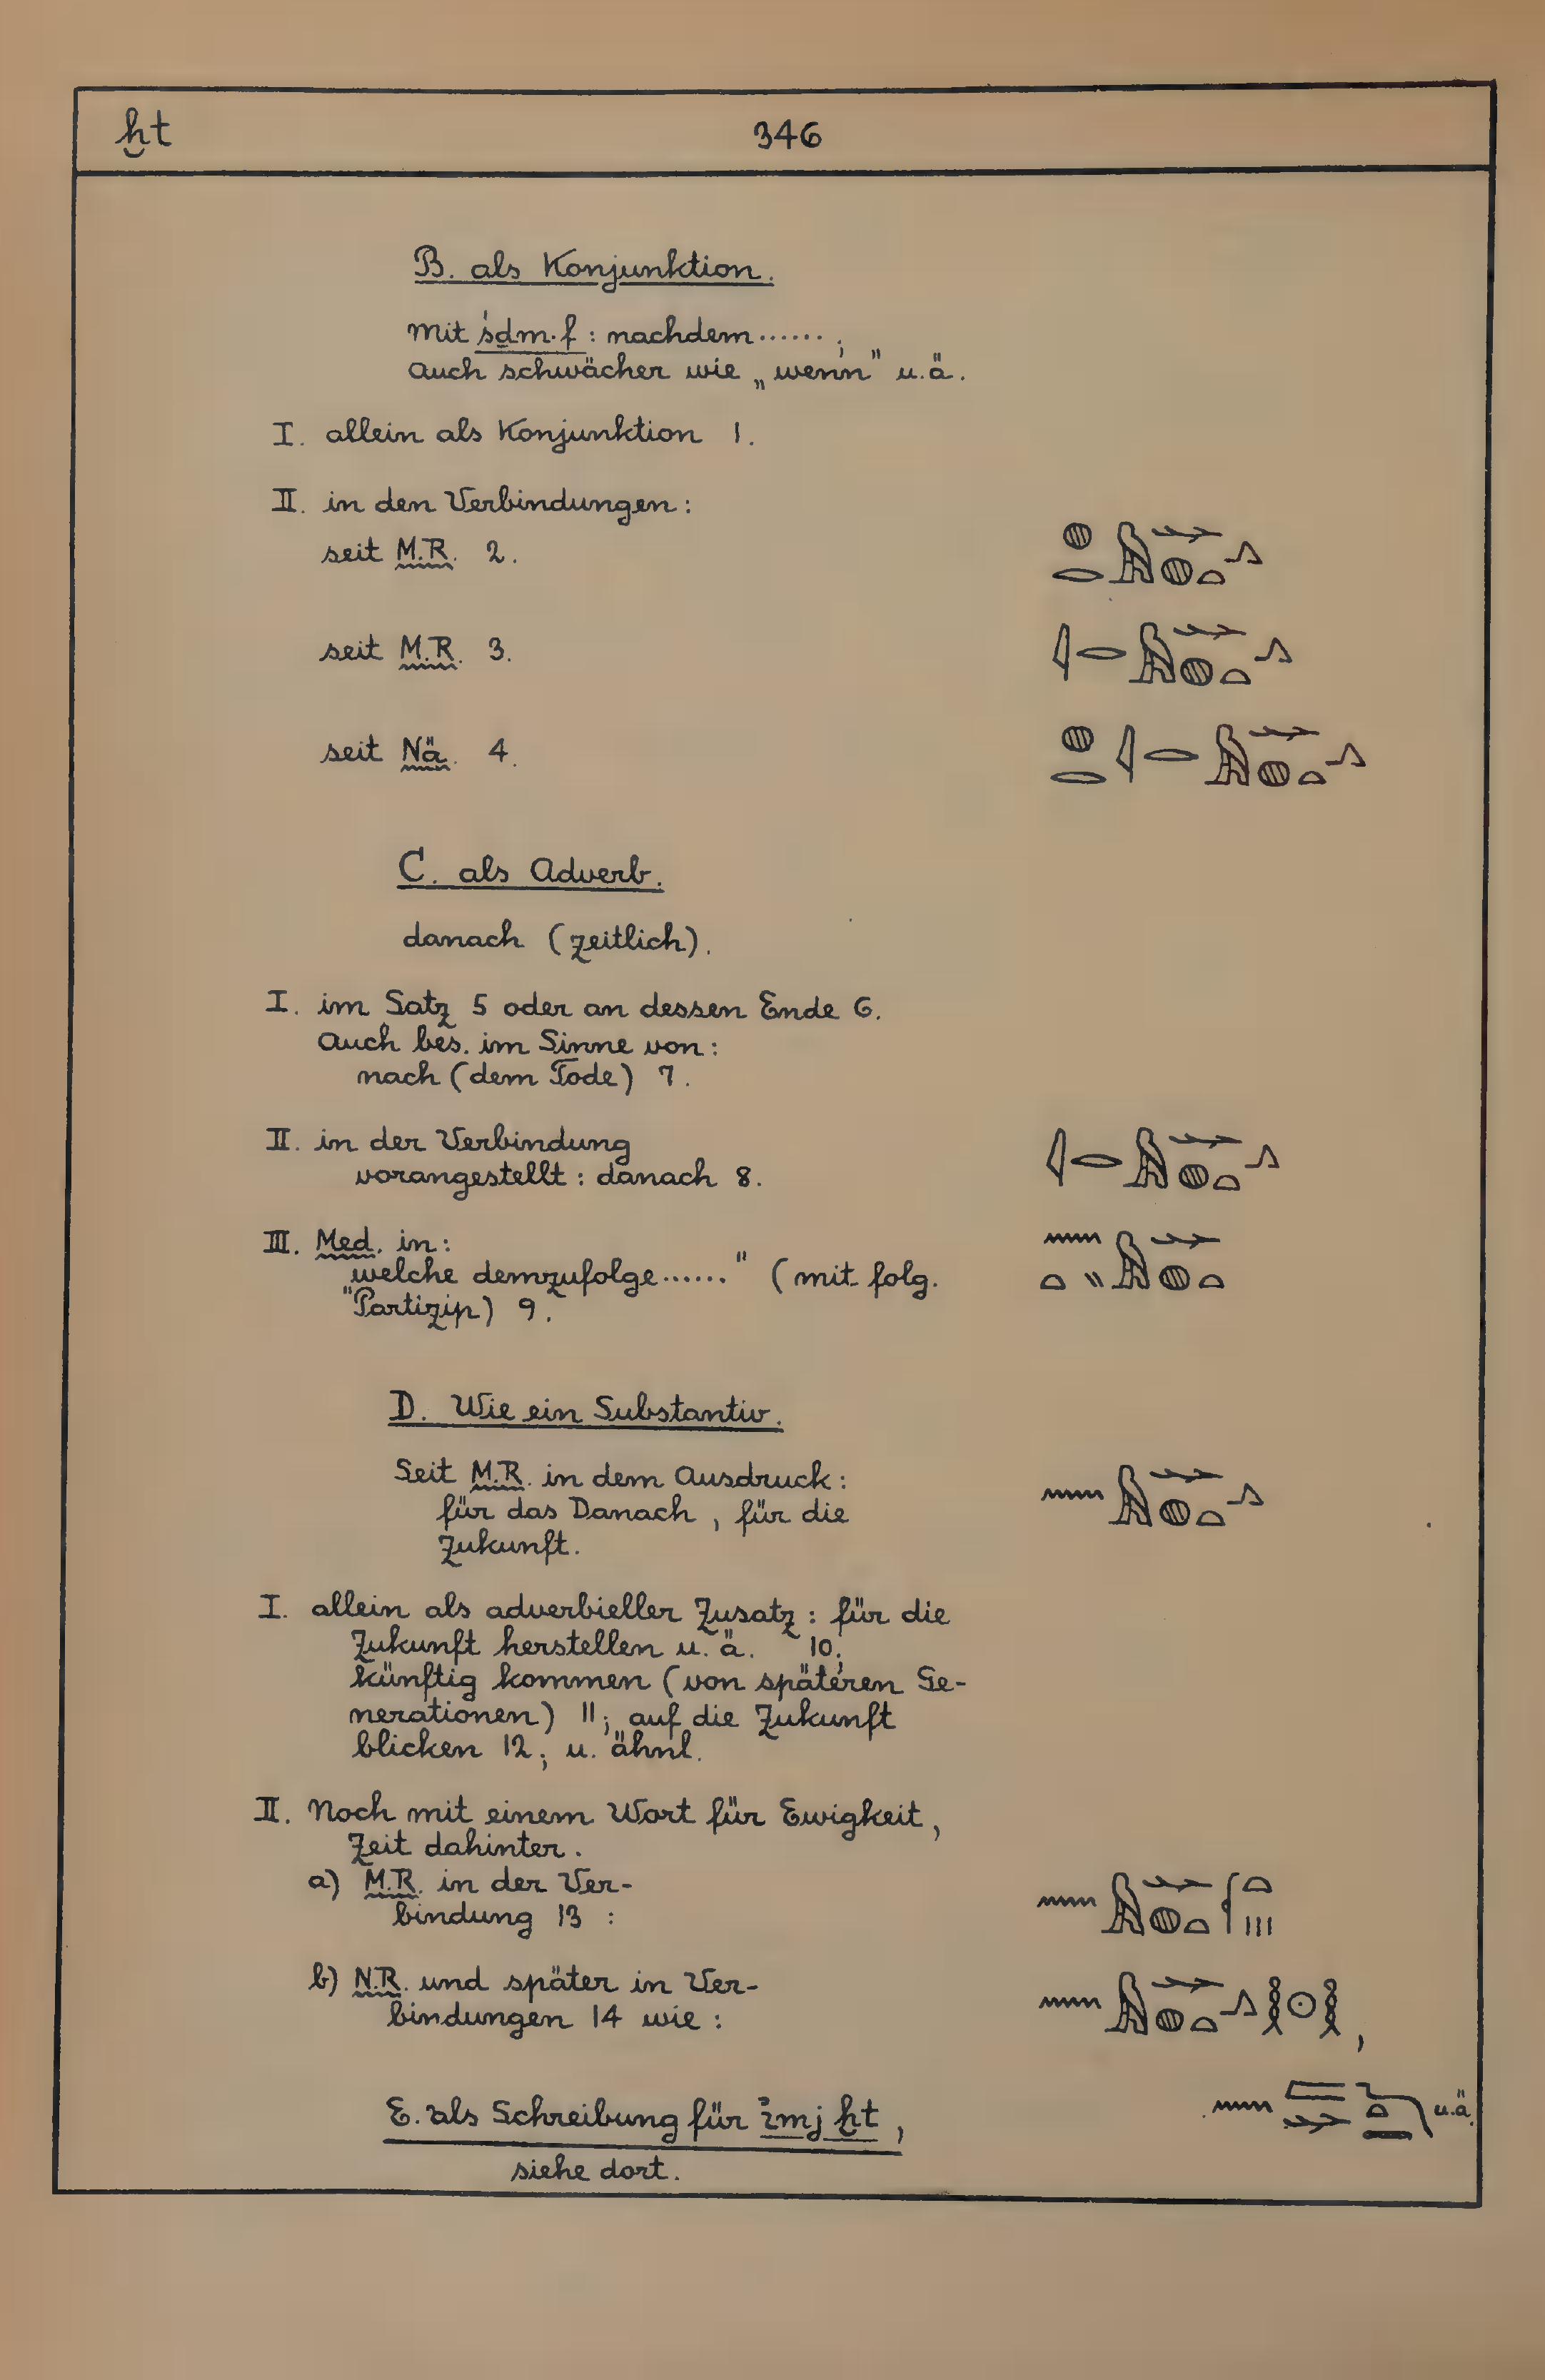 ḫt 346
B. als Konjunktion.
mit śḏm·f : nachdem ...... ;
auch schwächer wie „wenn" u.ä.
I. allein als Konjunktion 1.
II. in den Verbindungen:
seit M.R. 2. 𓐍𓂋𓅓𓆱𓐍𓏏𓂻
seit M.R. 3. 𓇋𓂋𓅓𓆱𓐍𓏏𓂻
seit Nä. 4. 𓐍𓂋𓇋𓂋𓅓𓆱𓐍𓏏𓂻
C. als Adverb.
danach (zeitlich).
I. im Satz 5 oder an dessen Ende 6.
Auch bes. im Sinne von:
nach (dem Tode) 7.
II. in der Verbindung 𓇋𓂋𓅓𓆱𓐍𓏏𓂻
vorangestellt : danach 8.
III. Med. in: 𓈖𓏏𓏭𓅓𓆱𓐍𓏏
„welche demzufolge ......" (mit folg.
Partizip) 9.
D. Wie ein Substantiv.
Seit M.R. in dem Ausdruck: 𓈖𓅓𓆱𓐍𓏏𓂻
für das Danach, für die
Zukunft.
I. allein als adverbieller Zusatz : für die
Zukunft herstellen u. ä. 10;
künftig kommen (von späteren Ge-
nerationen) 11; auf die Zukunft
blicken 12; u. ähnl.
II. Noch mit einem Wort für Ewigkeit,
Zeit dahinter.
a) M.R. in der Ver- 𓈖𓅓𓆱𓐍𓏏𓆳𓏏𓏥
bindung 13 :
b) N.R. und später in Ver- 𓈖𓅓𓆱𓐍𓏏𓂻𓎛𓇳𓎛,
bindungen 14 wie :
𓈖𓐝𓆱𓆓𓏏𓇿 u.ä.
E. als Schreibung für ı͗mj ḫt,
siehe dort.